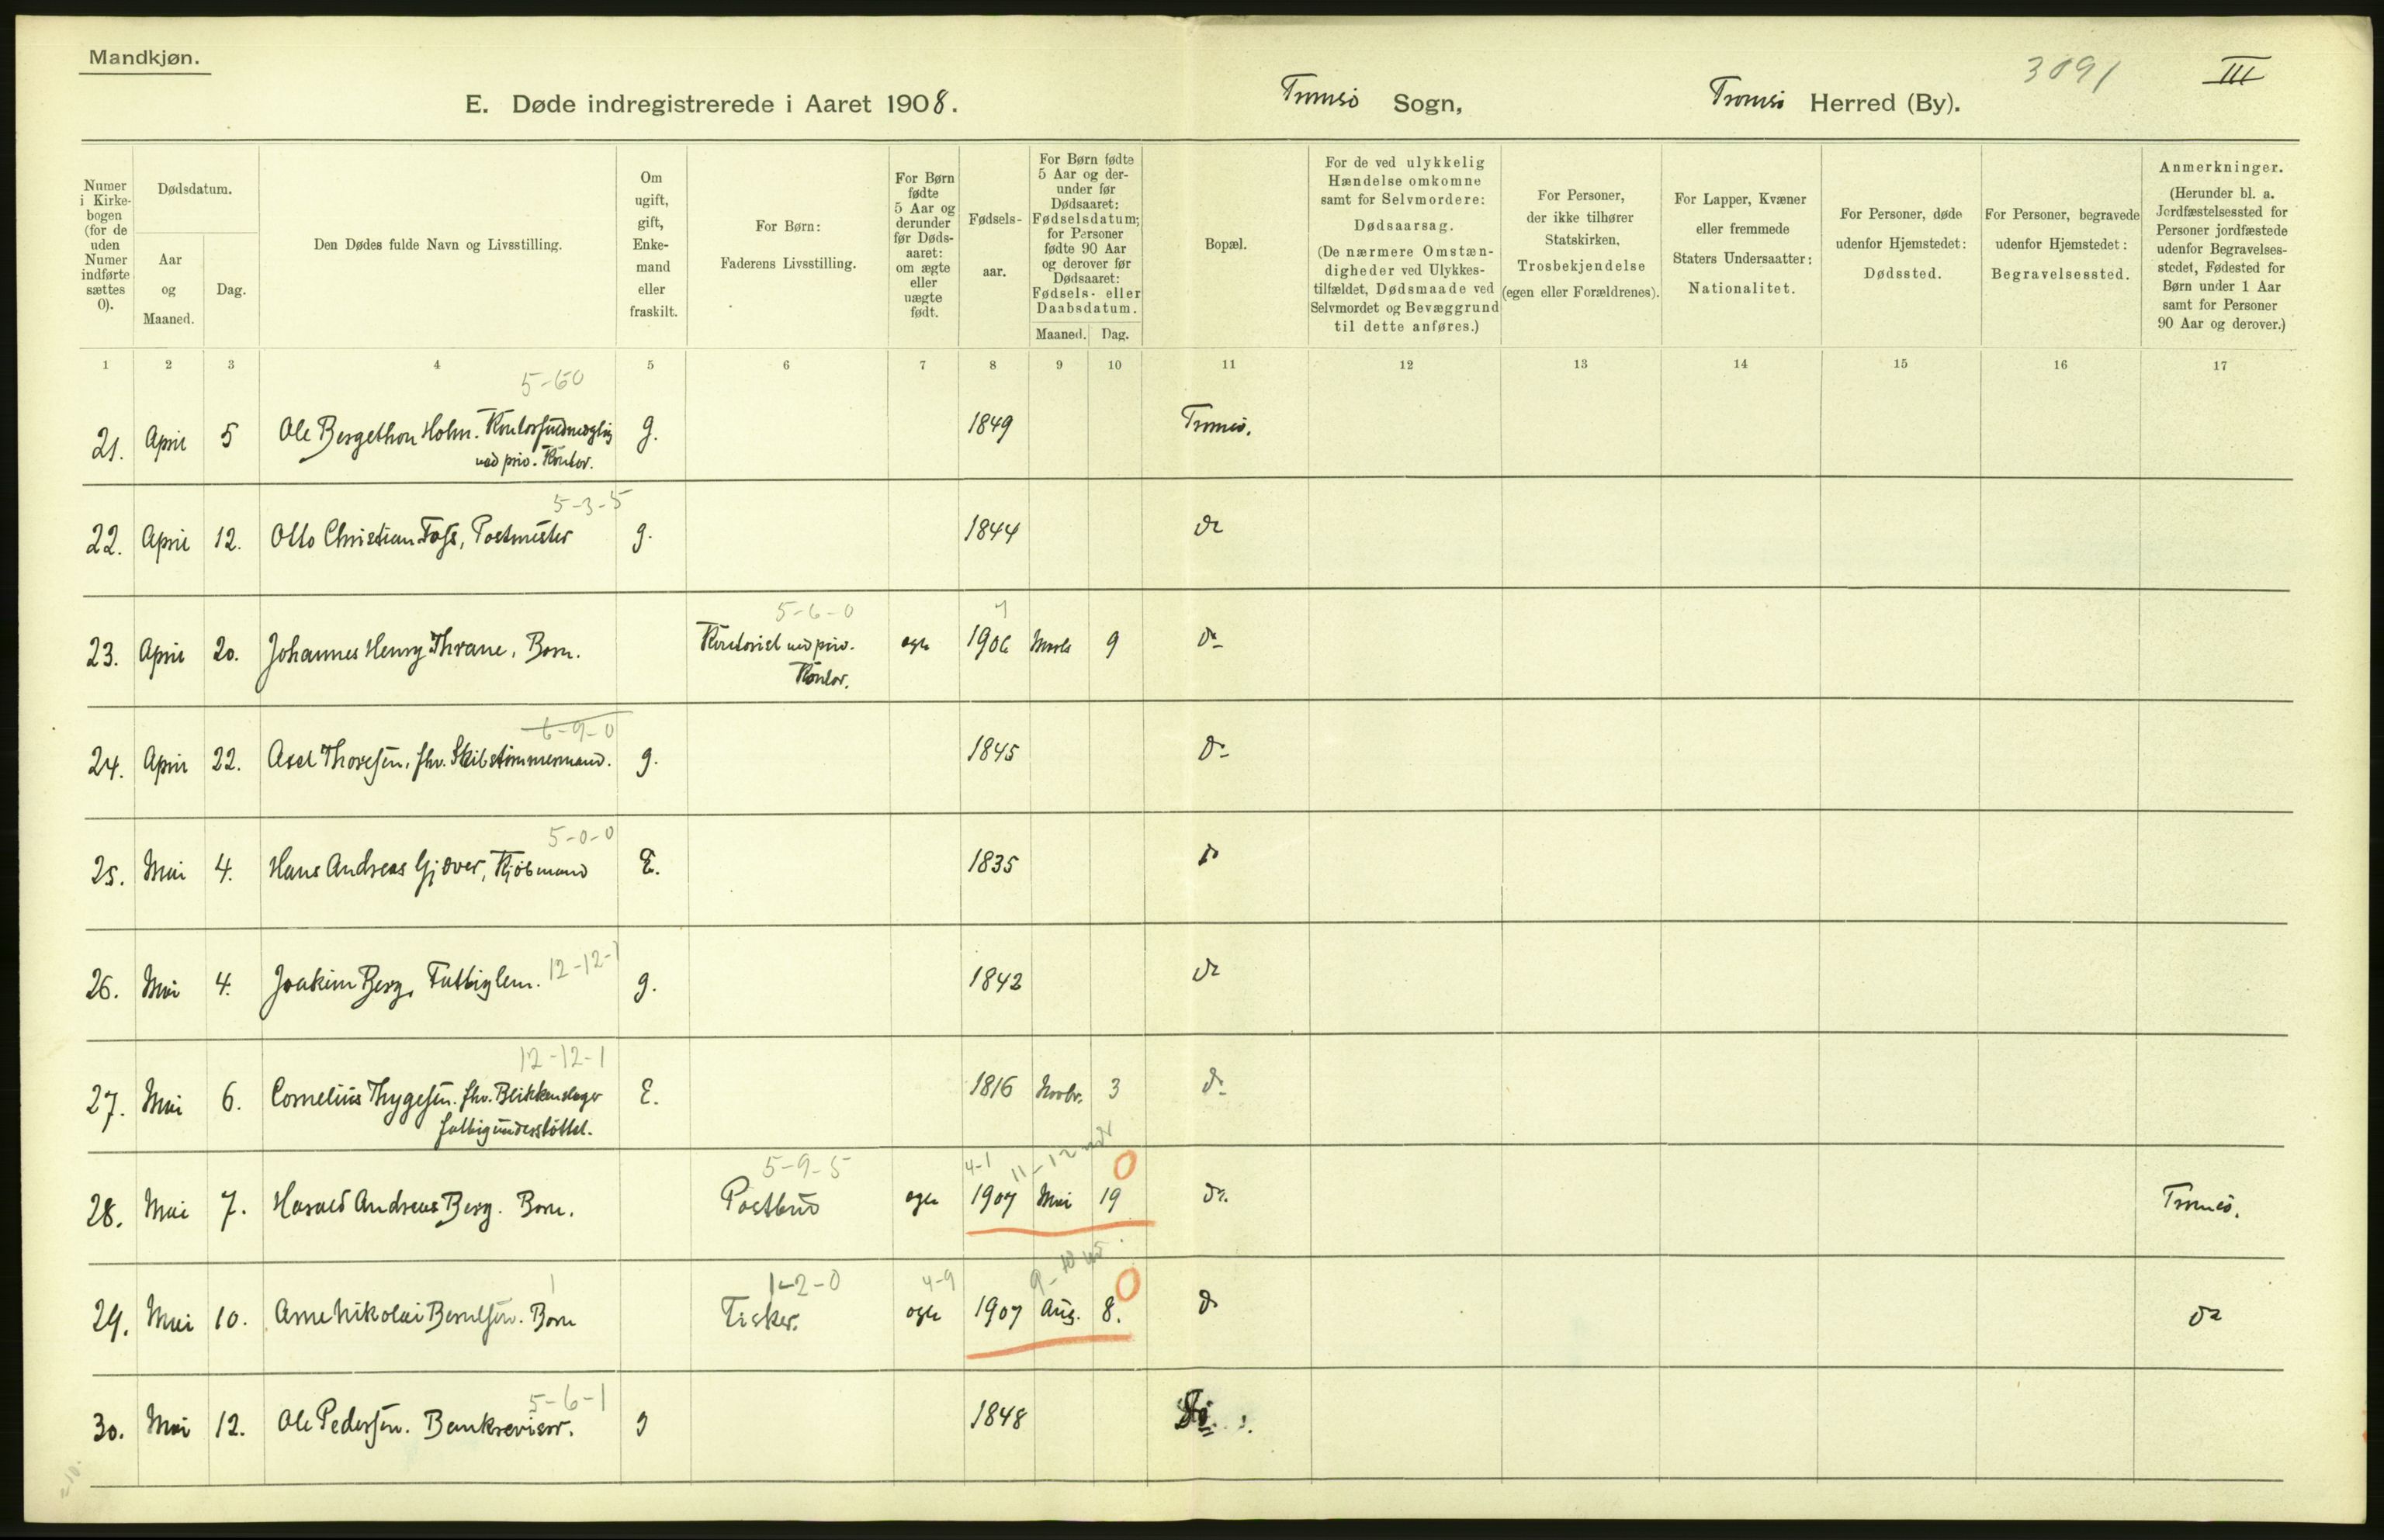 Mandkjøn.
3091
III
E. Døde indregistrerede i Aaret 1908.
Tromsö Sogn,
Tromsö Herred (By).
Numer i Kirkebogen (for de uden Numer indførte sættes 0).
Dødsdatum.
Aar og Maaned.
Dag.
Den Dødes fulde Navn og Livsstilling.
Om ugift, gift, Enkemand eller fraskilt.
For Børn: Faderens Livsstilling.
For Børn fødte 5 Aar og derunder før Dødsaaret: om ægte eller uægte født.
Fødselsaar.
For Børn fødte 5 Aar og derunder før Dødsaaret: Fødselsdatum; for Personer fødte 90 Aar og derover før Dødsaaret: Fødsels- eller Daabsdatum.
Maaned.
Dag.
Bopæl.
For de ved ulykkelig Hændelse omkomne samt for Selvmordere: Dødsaarsag. (De nærmere Omstændigheder ved Ulykkestilfældet, Dødsmaade ved Selvmordet og Bevæggrund til dette anføres.)
For Personer, der ikke tilhører Statskirken, Trosbekjendelse (egen eller Forældrenes).
For Lapper, Kvæner eller fremmede Staters Undersaatter: Nationalitet.
For Personer, døde udenfor Hjemstedet: Dødssted.
For Personer, begravede udenfor Hjemstedet: Begravelsessted.
Anmerkninger. (Herunder bl. a. Jordfæstelsessted for Personer jordfæstede udenfor Begravelsesstedet, Fødested for Børn under 1 Aar samt for Personer 90 Aar og derover.)
1 2 3 4 5 6 7 8 9 10 11 12 13 14 15 16 17
5-60
21. April 5 Ole Bergethon Holm. Kontorfuldmægtig g. 1849 Tromsö.
ved priv. Kontor.
5-3-5
22. April 12. Otto Christian Foss, Postmester g. 1844 do
5-6-0 7
23. April 20. Johannes Henry Thrane, Barn. Kontorist ved priv. egte 1906 Marts 9 do
Kontor.
6-9-0
24. April 22. Axel Thoresen, fhv. Skibstømmermand. g. 1845 do
5-0-0
25. Mai 4. Hans Andreas Gjæver, Kjöbmand E. 1835 do
12-12-1
26. Mai 4. Joakim Berg, Fattiglem. g. 1842 do
12-12-1
27. Mai 6. Cornelius Thygesen. fhv. Blikkenslager E. 1816 Novbr. 3 do
fattigunderstöttet.
5-9-5 4-1 11-12 mdr 0
28. Mai 7. Harald Andreas Berg. Barn. Postbud egte 1907 Mai 19 do. Tromsö.
1 1-2-0 4-9 9-10 md 0
29. Mai 10. Arne Nikolai Berntsen. Barn Fisker. egte 1907 Aug. 8. do do
5-6-1
30. Mai 12. Ole Pedersen. Bankrevisor. g 1848 do